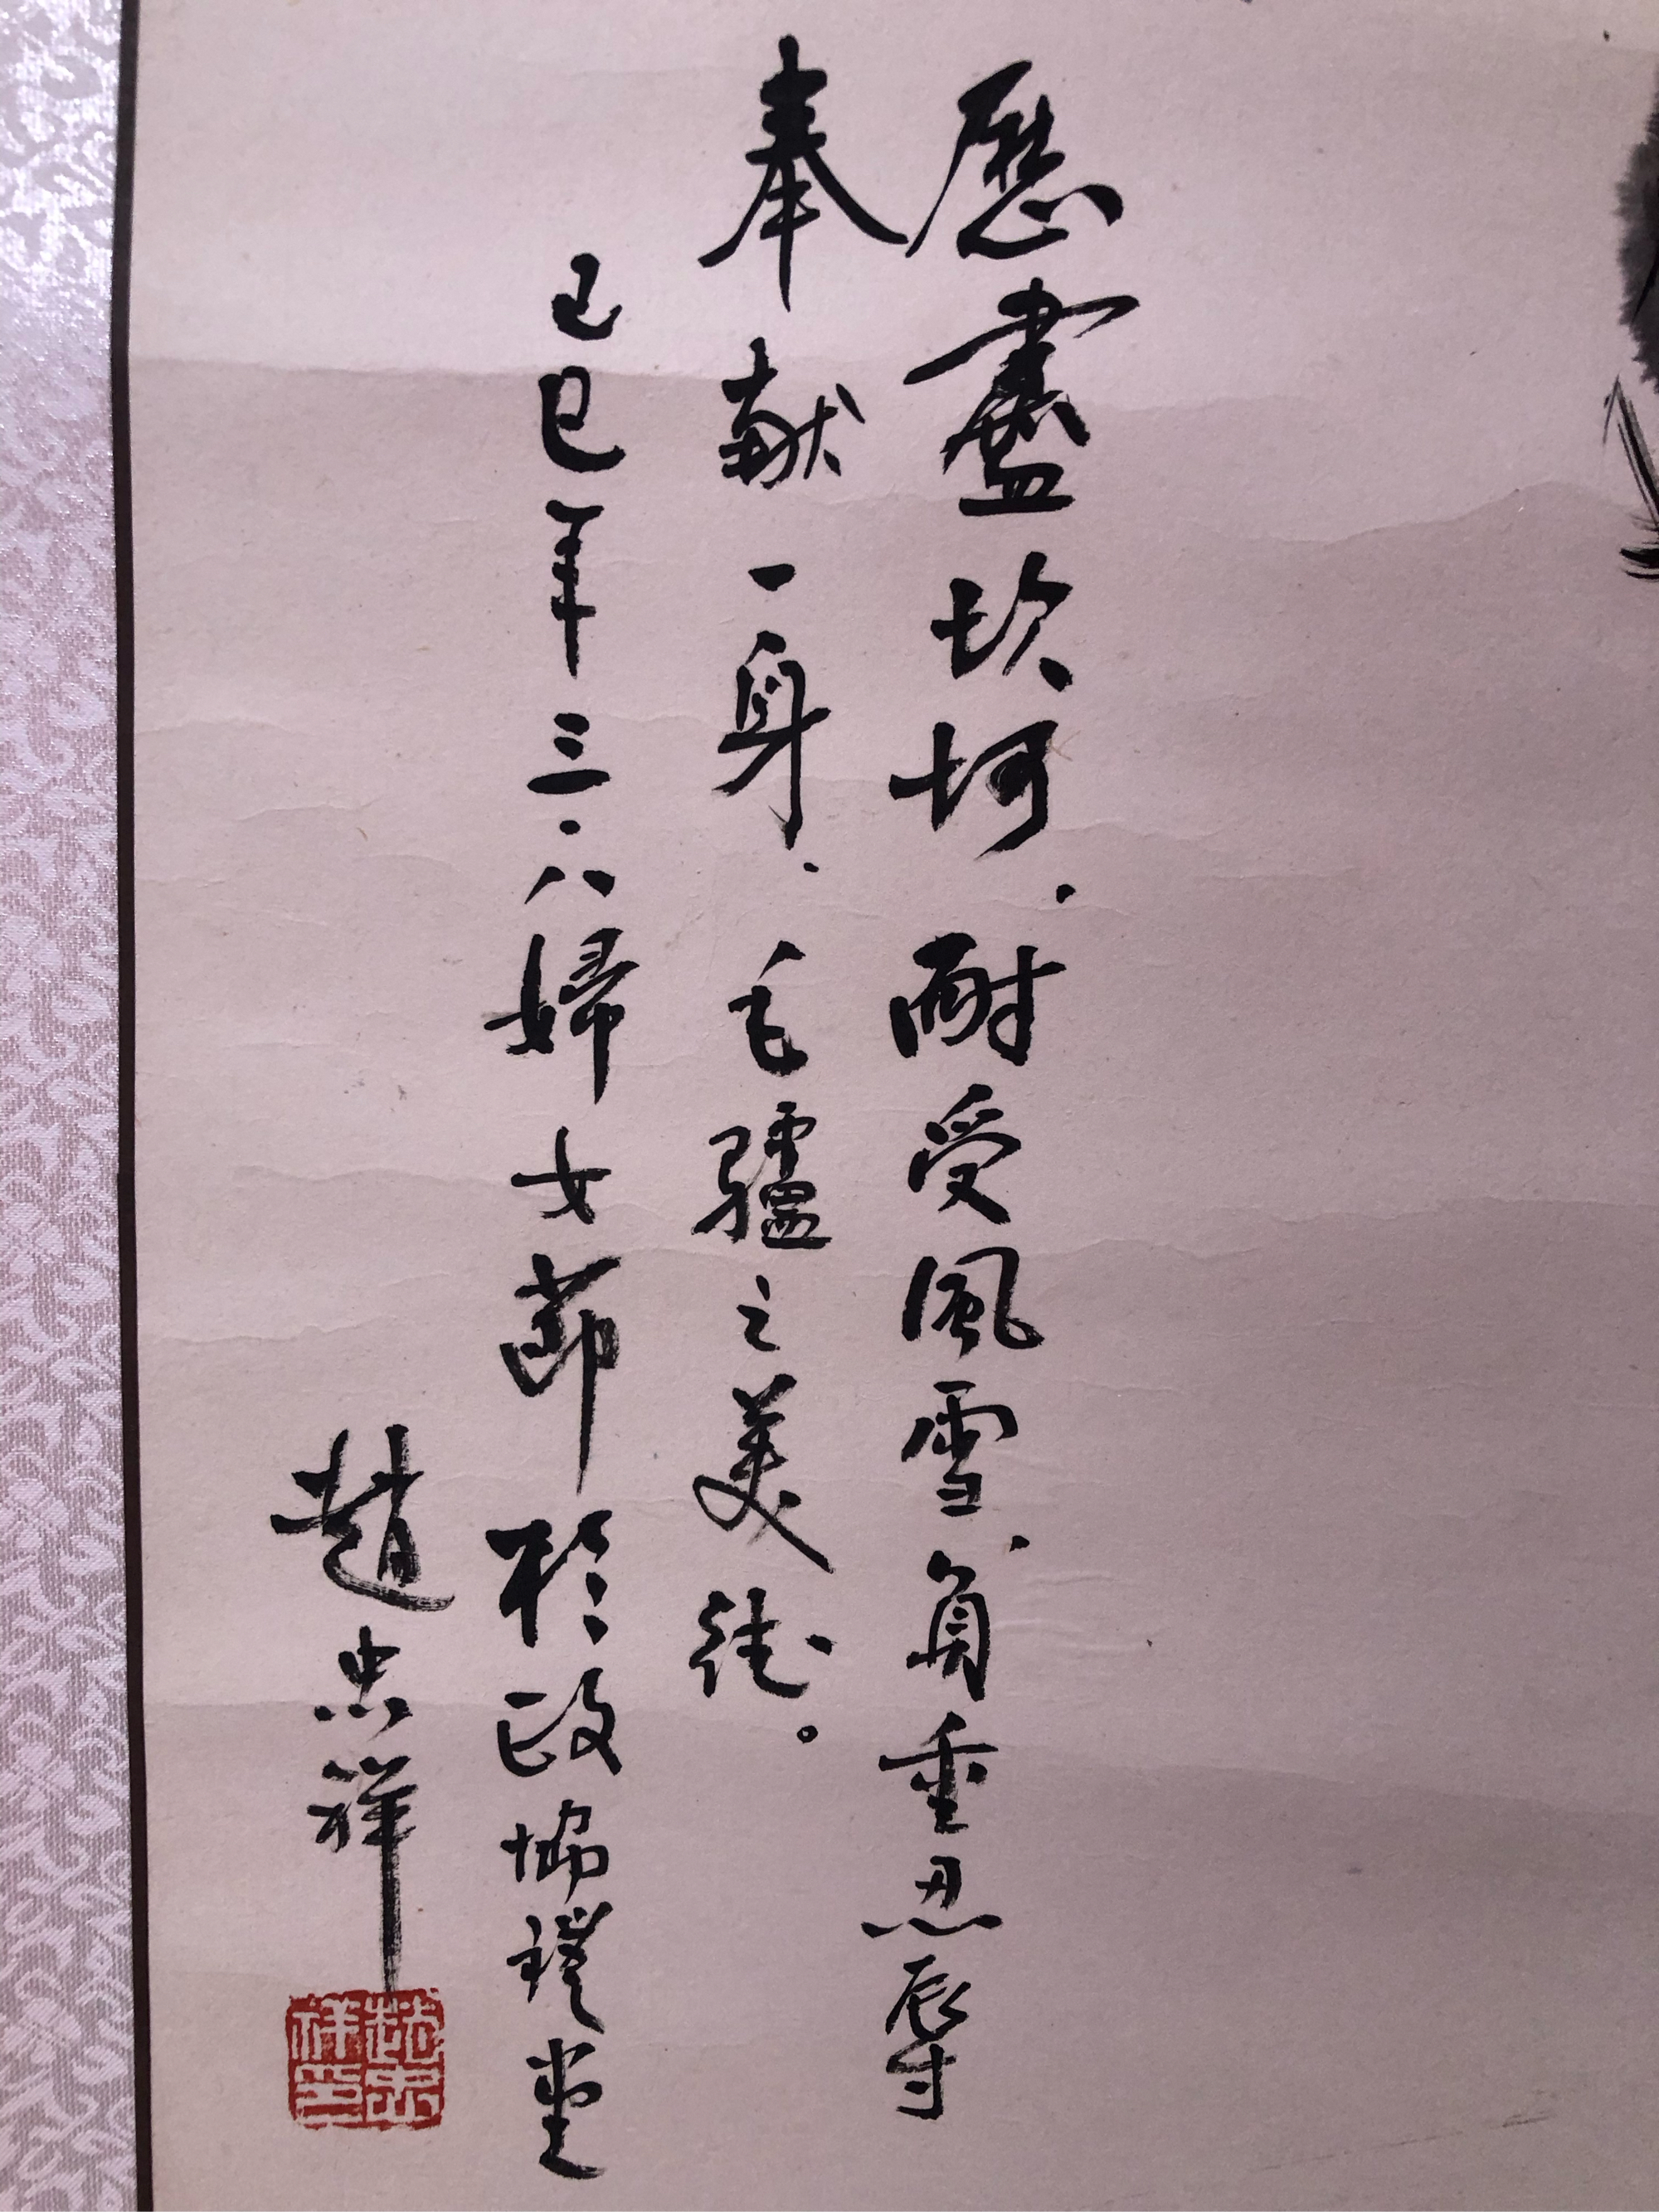 歷盡坎坷．耐受風雪、負重忍辱
奉献一身．毛驢之美德。
己巳年三·八婦女節於政協禮堂
趙忠祥
趙忠祥印